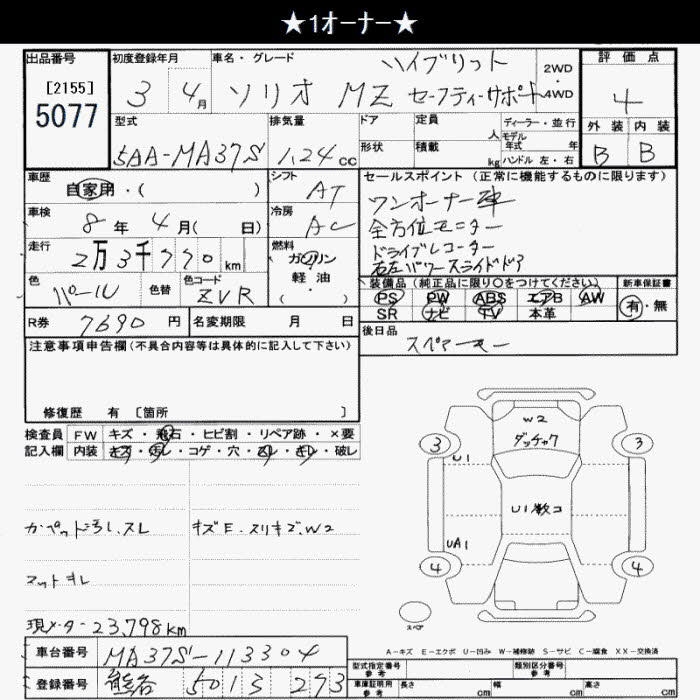 ★1オーナー★
出品番号 [2155] 5077
初度登録年月 3年 4月
車名・グレード ハイブリット ソリオ MZ セーフティーサポート
2WD・4WD
評価点 4
外装 B 内装 B
型式 5AA-MA37S
排気量 1.24cc
ドア 形状
定員 人 積載 kg
ディーラー・並行
モデル年式 年
ハンドル 左・右
車歴 自家用・( )
シフト AT
車検 8年 4月( 日)
冷房 AC
走行 2万3千790km
燃料 ガソリン 軽・油 ( )
色 パール 色替 色コード ZVR
セールスポイント(正常に機能するものに限ります)
ワンオーナー車
全方位モニター
ドライブレコーダー
右左パワースライドドア
装備品(純正品に限り○をつけてください)
PS PW ABS エアB AW
SR ナビ TV 本革
新車保証書 有・無
R券 7690円 名変期限 月 日
後日品 スペアキー
注意事項申告欄(不具合内容等は具体的に記入して下さい)
修復歴 有 [箇所 ]
検査員記入欄
FW キズ・飛石・ヒビ割・リペア跡・×要
内装 キズ・汚レ・コゲ・穴・スレ・キレ・破レ
カーペット汚レ、スレ
キズE・スリキズ、W2
マットキレ
現メーター23,798km
W2
ダッチャク
3 3
U1
U1数コ
UA1
4 4
スペア
A-キズ E-エクボ U-凹み W-補修跡 S-サビ C-腐食 XX-交換済
車台番号 MA37S-113304
登録番号 熊谷 501 ミ 273
型式指定番号 参考
類別区分番号 参考
車庫証明用 参考 長さ cm 幅 cm 高さ cm